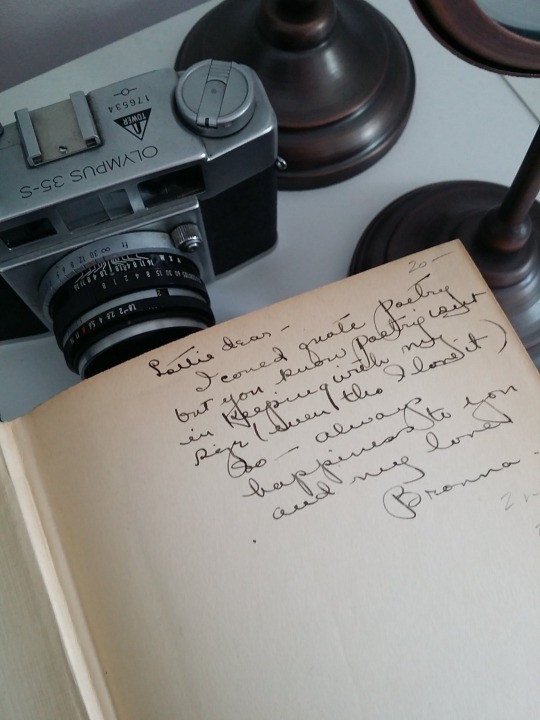 176534
TOWER
OLYMPUS 35-S
ft
20-
Lettie dear-
I coued quote Poetry
but you know Poetry isn't
in Keeping with my
size (even tho I love it)
So — always
happiness to you
and my love
Bronna -